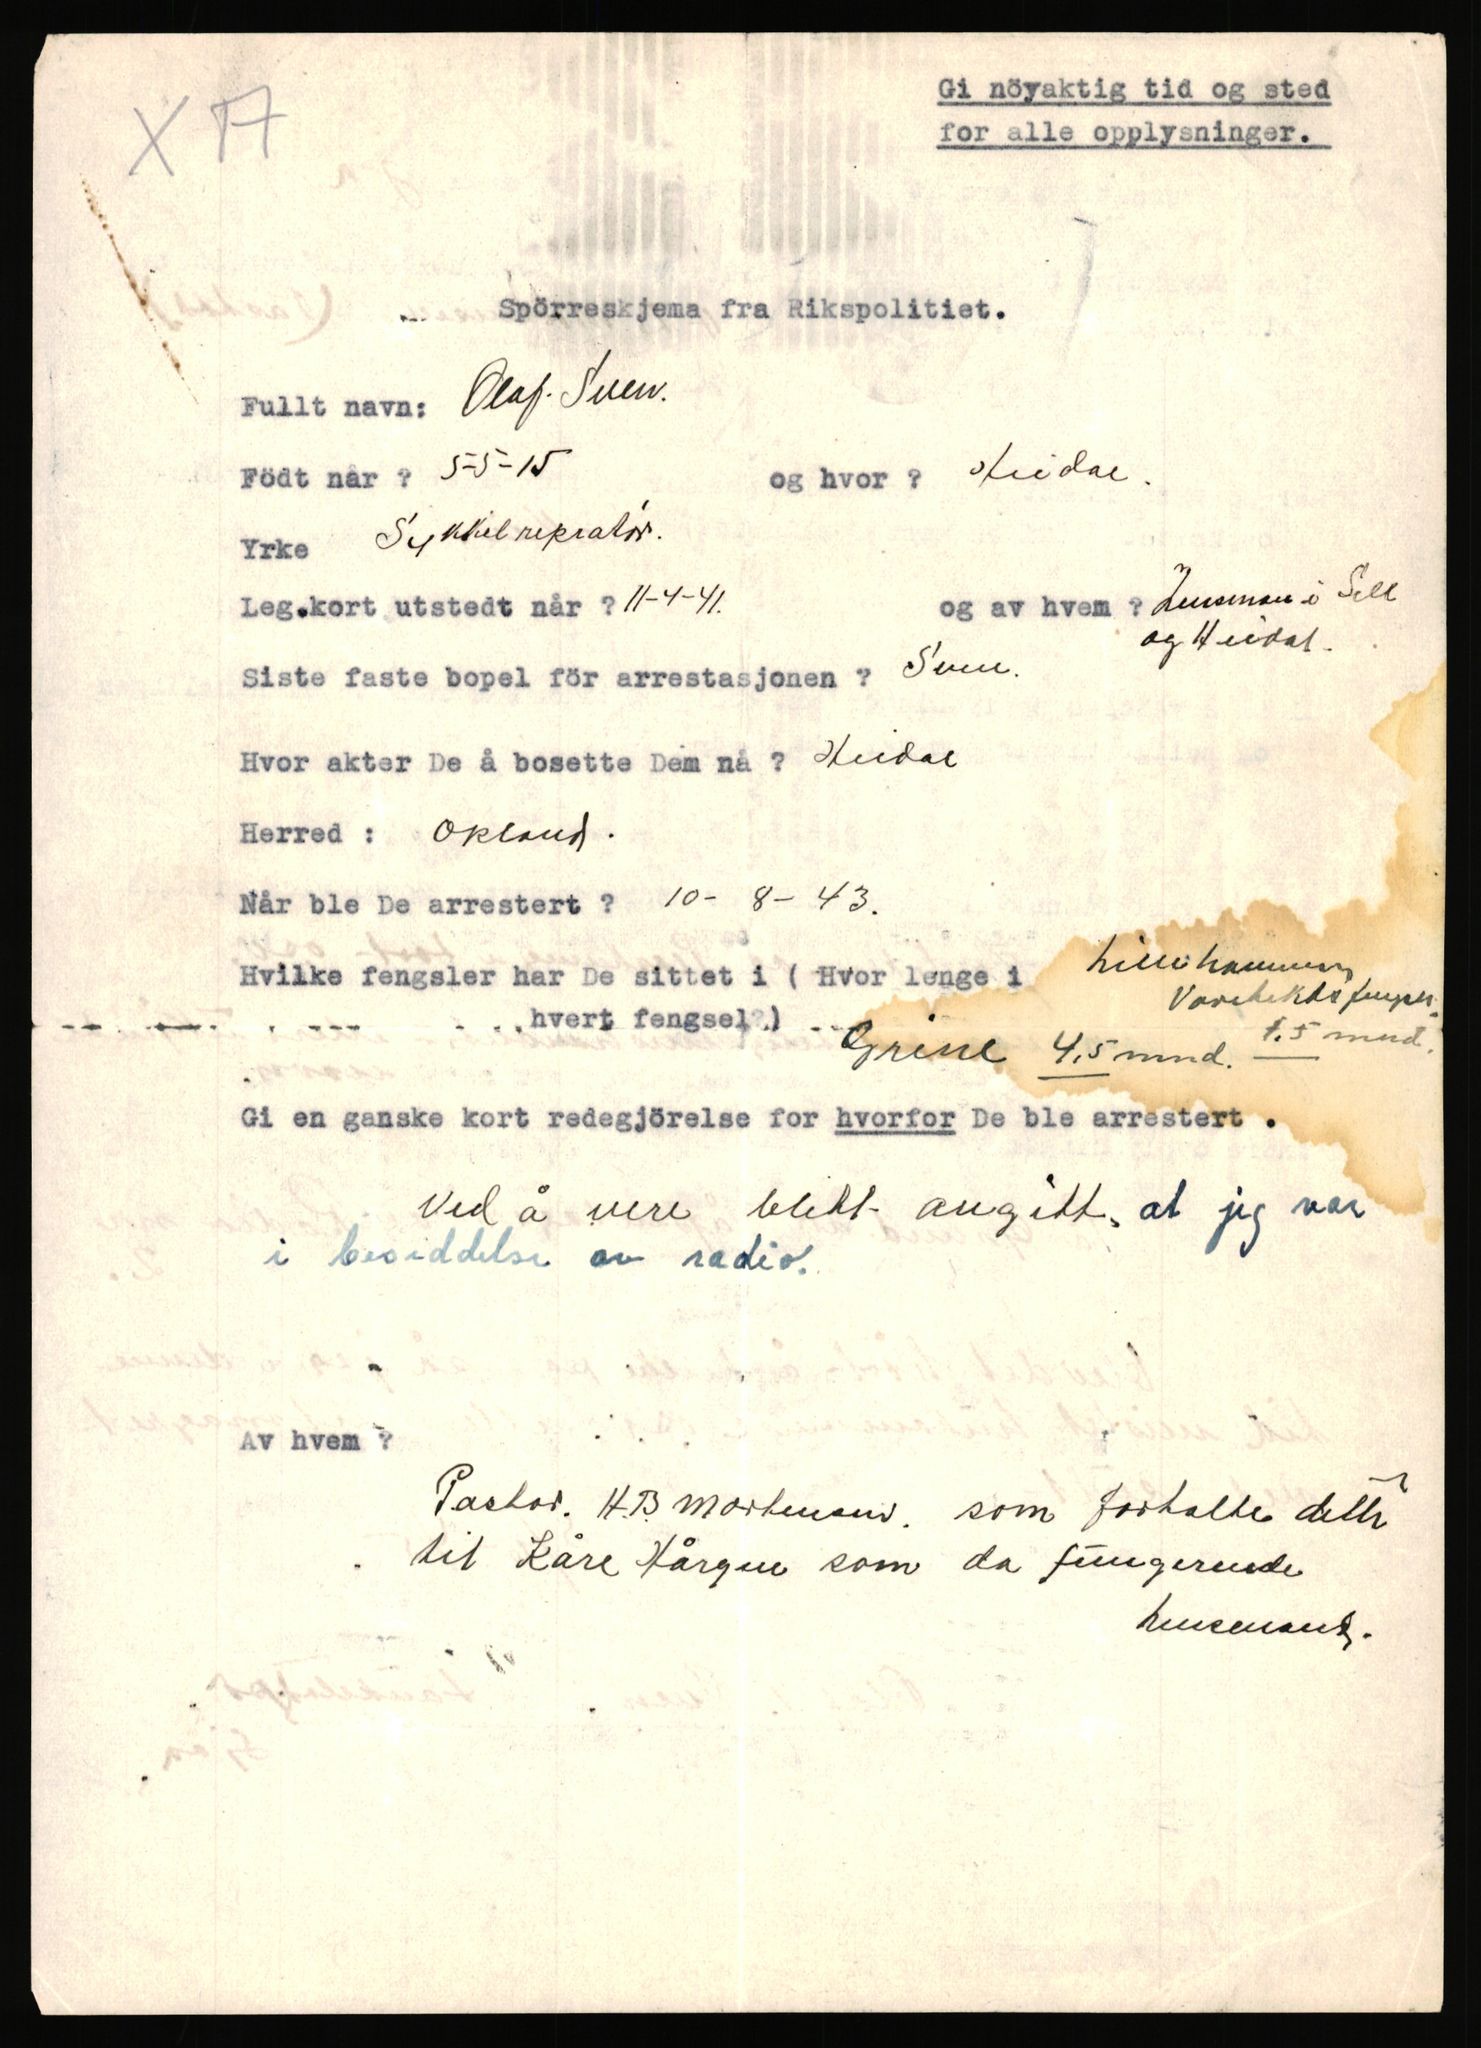 X A
Gi nöyaktig tid og sted
for alle opplysninger.
Spörreskjema fra Rikspolitiet.
Fullt navn: Olaf. Suen.
Födt når ? 5-5-15 og hvor ? Heidal.
Yrke Sykkelrepratör.
Leg.kort utstedt når ? 11-4-41. og av hvem ? Lensman i Sell
og Heidal.
Siste faste bopel för arrestasjonen ? Suen.
Hvor akter De å bosette Dem nå ? Heidal
Herred : Opland.
Når ble De arrestert ? 10- 8- 43.
Hvilke fengsler har De sittet i ( Hvor lenge i Lillehammer
Varetektsfengsel.
hvert fengsel?) Grini 4,5 mnd. 1.5 mnd.
Gi en ganske kort redegjörelse for hvorfor De ble arrestert .
Ved å vere blitt angitt, at jeg var
i besiddelse av radio.
Av hvem ?
Pastor. H.B Mortensen. som fortalte dette
til Kåre Hårgen som da fungerende
lensmand.